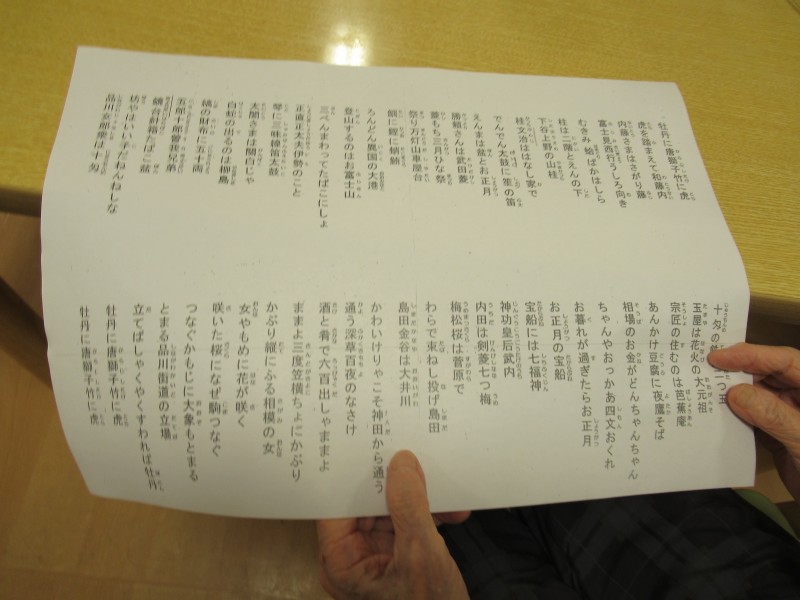 牡丹に唐獅子竹に虎
虎を踏まえて和藤内
内藤さまはさがり藤
富士見西行うしろ向き
むきみ蛤ばかはしら
柱は二階とえんの下
下谷上野の山桂
桂文治ははなし家で
でんでん太鼓に笙の笛
えんまは盆とお正月
勝頼さんは武田菱
菱もち三月ひな祭
祭り万灯山車屋台
鯛に鰹に蛸鮪
ろんどん異国の大港
登山するのはお富士山
三べんまわってたばこにしょ
正直正太夫伊勢のこと
琴に三味線笛太鼓
太閤さまは関白じゃ
白蛇の出るのは柳島
縞の財布に五十両
五郎十郎曽我兄弟
鏡台針箱たばこ盆
坊やはいい子だねんねしな
品川女郎衆は十匁
十匁の 二つ玉
玉屋は花火の大元祖
宗匠の住むのは芭蕉庵
あんかけ豆腐に夜鷹そば
相場のお金がどんちゃんちゃん
ちゃんやおっかあ四文おくれ
お暮れが過ぎたらお正月
お正月の宝船
宝船には七福神
神功皇后武内
内田は剣菱七つ梅
梅松桜は菅原で
わらで束ねし投げ島田
島田金谷は大井川
かわいけりゃこそ神田から通う
通う深草百夜のなさけ
酒と肴で六百出しゃままよ
ままよ三度笠横ちょにかぶり
かぶり縦にふる相模の女
女やもめに花が咲く
咲いた桜になぜ駒つなぐ
つなぐかもじに大象もとまる
とまる品川街道の立場
立てばしゃくやくすわれば牡丹
牡丹に唐獅子竹に虎
牡丹に唐獅子竹に虎